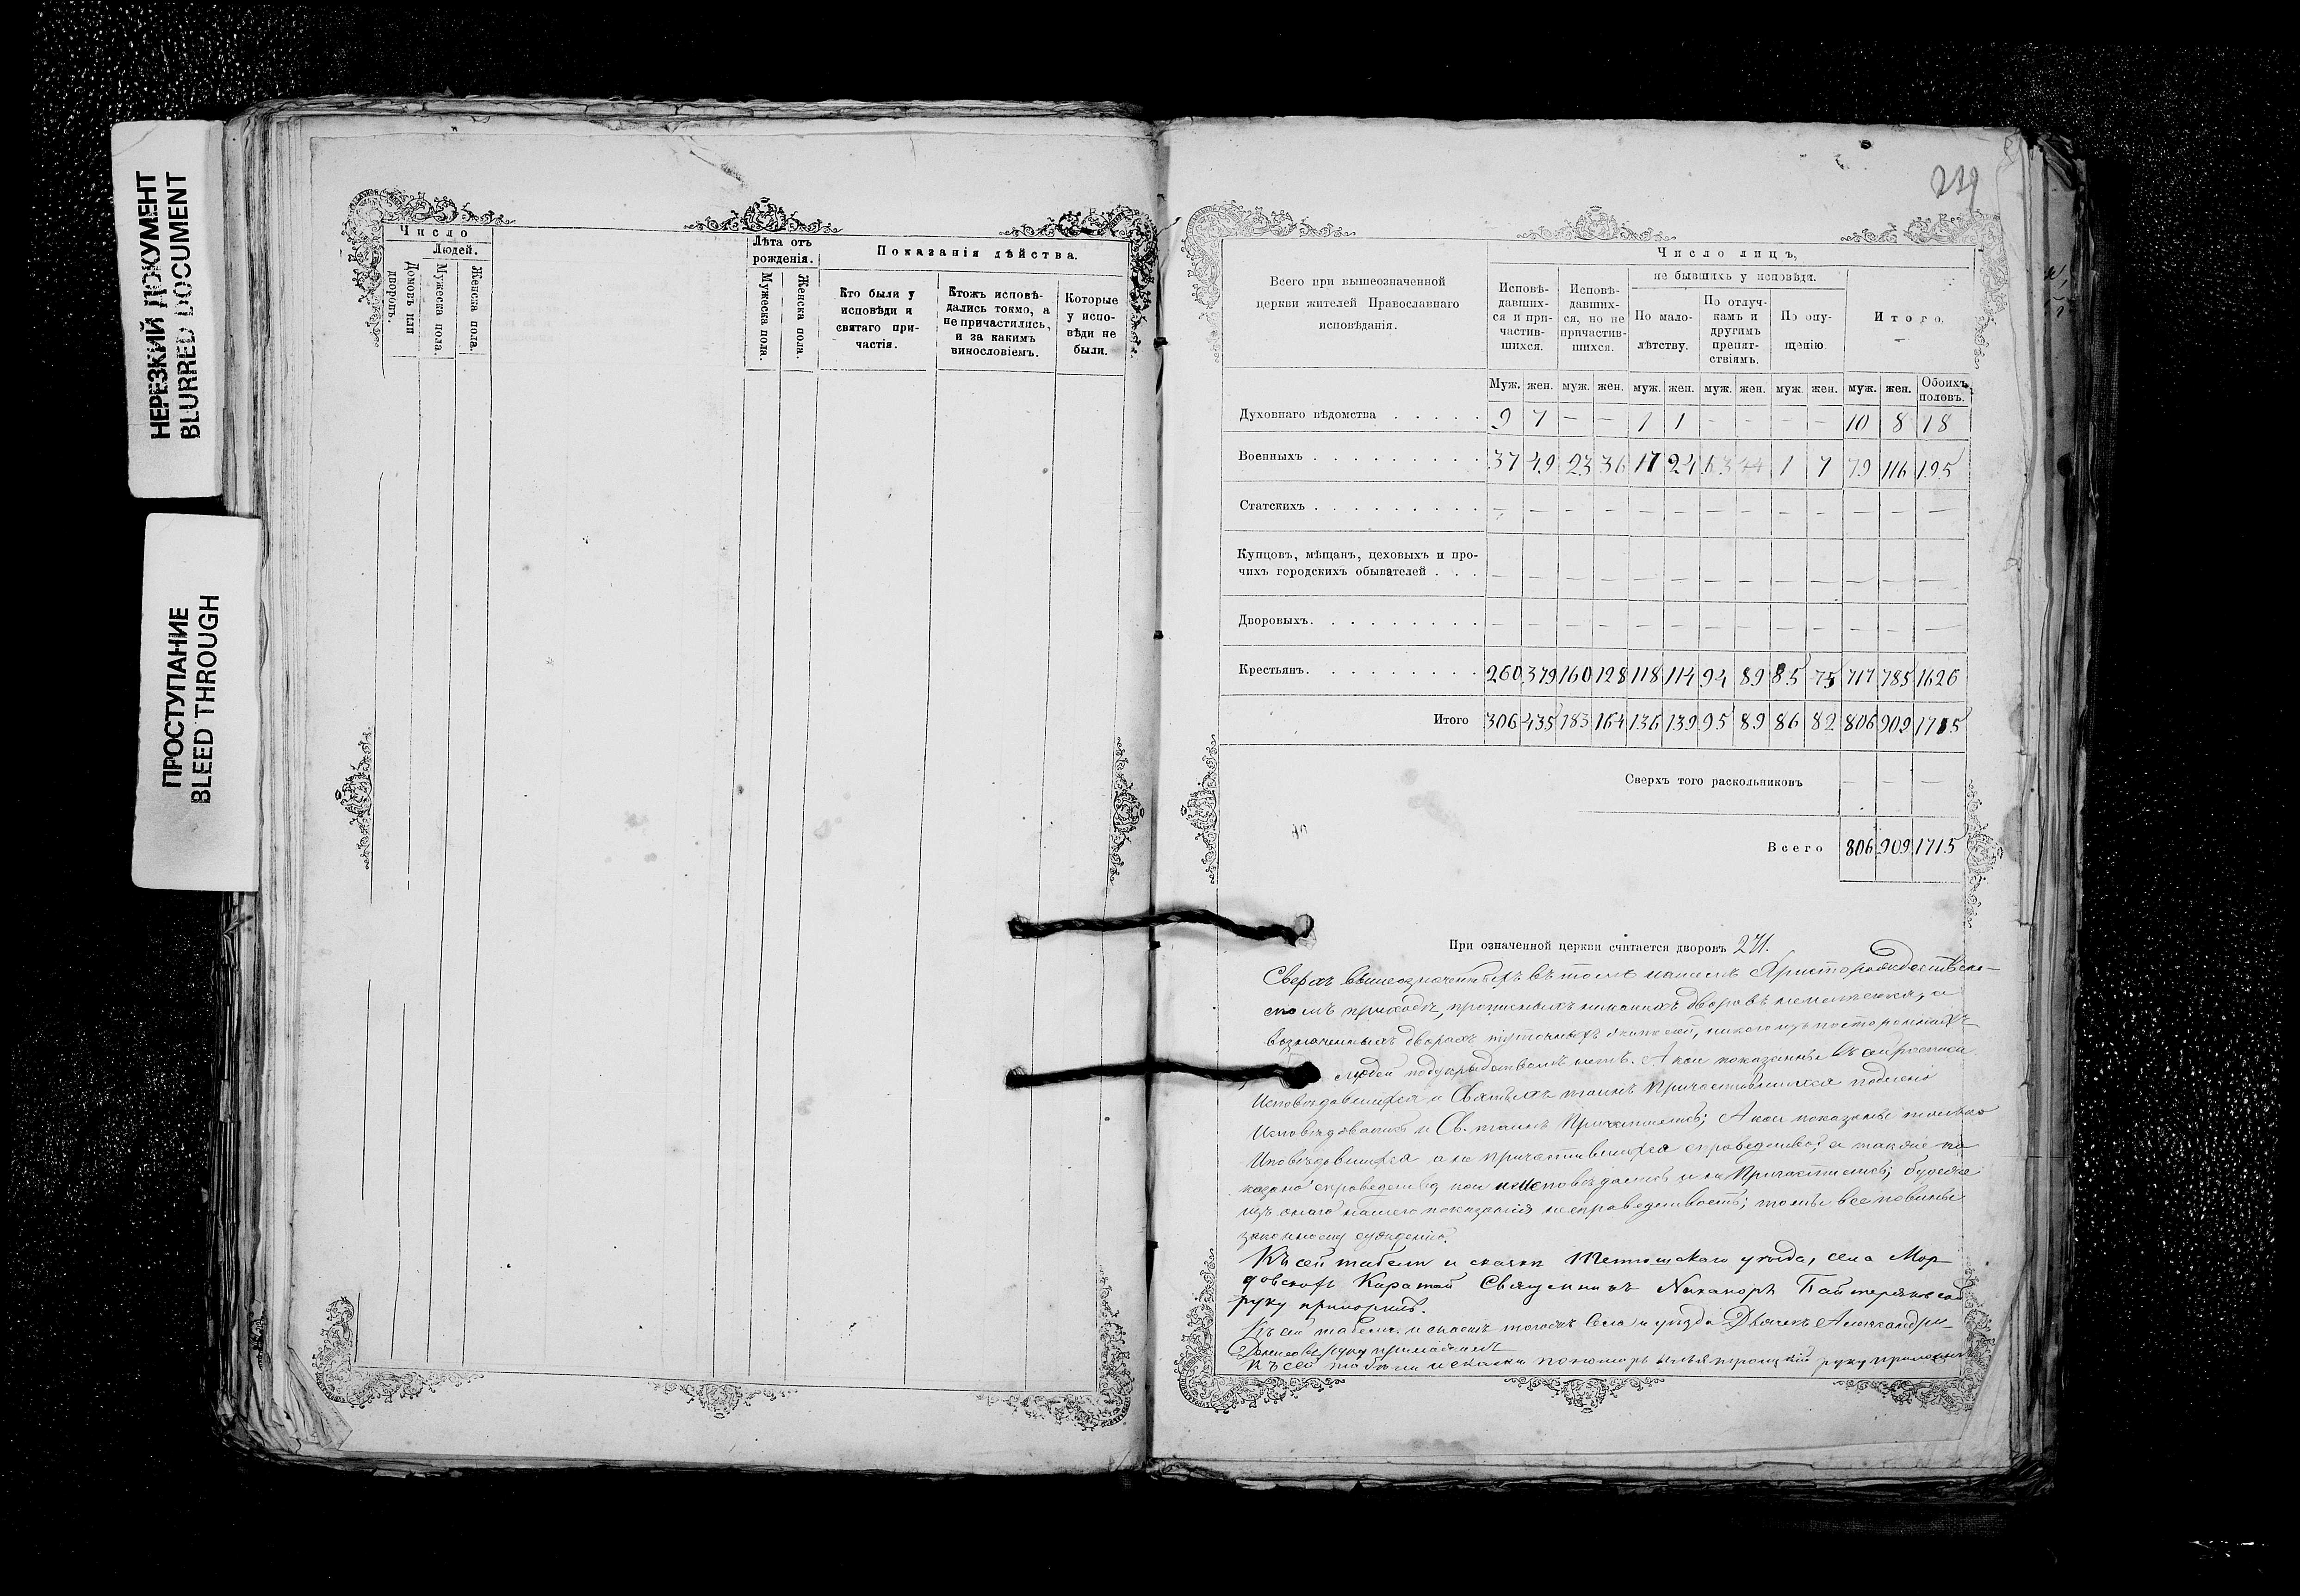 НЕРЕЗКИЙ ДОКУМЕНТ
BLURRED DOCUMENT
ПРОСТУПАНИЕ
BLEED THROUGH
Число
Людей.
Домовъ или дворовъ.
Мужеска пола.
Женска пола.
Лѣта отъ рожденія.
Мужеска пола.
Женска пола.
Показанія дѣйства.
Кто были у исповѣди и святаго причастія.
Ктожъ исповѣдались токмо, а не причастились, и за какимъ винословіемъ.
Которые у исповѣди не были.
Всего при вышеозначенной
церкви жителей Православнаго
исповѣданія.
Число лицъ,
Исповѣдавшихся и причастившихся.
Исповѣдавшихся, но не причастившихся.
не бывшихъ у исповѣди.
По малолѣтству.
По отлучкамъ и другимъ препятствіямъ.
По опущенію.
Итого.
Муж. жен. муж. жен. муж. жен. муж. жен. муж. жен. муж. жен. Обоихъ половъ.
Духовнаго вѣдомства . . . . . 9 7 — — 1 1 - - - — 10 8 18
Военныхъ . . . . . . . . . 37 49 23 36 17 24 1 7 79 116 195
Статскихъ . . . . . . . . . — — — — — — — — — — — — —
Купцовъ, мѣщанъ, цеховыхъ и про-
чихъ городскихъ обывателей . . . — — — — — — — — — — — — —
Дворовыхъ. . . . . . . . . — — — — — — — — — — — — —
Крестьянъ. . . . . . . . . 260 379 160 128 118 114 94 89 85 75 717 785 1626
Итого 306 435 183 164 136 139 95 89 86 82 806 909 1715
Сверхъ того раскольниковъ — — —
Всего 806 909 1715
При означенной церкви считается дворовъ 271.
Сверхъ вышеозначенныхъ въ томъ нашемъ Христорождественс-
комъ приходѣ, прописныхъ никакихъ дворовъ неимеется, а
въозначенныхъ дворахъ жителей, никого изъ постороннихъ
людей подукрывательствомъ нетъ. А кои показаны въ сей росписи
Исповѣдавшимися и Святыхъ таинъ Причастившимися подлено
Исповѣдовались и Св. таинъ Причастились; А кои показаны только
Исповѣдовшимися а не причастившимися справедливо; а также по
казано справедливо кои неисповѣдались и не Причастились; будеже
изъ онаго нашего показания несправедливость; то мы все повинны
законному суждению.
Къ сей табели и сказки Тетюшскаго уѣзда, села Мор-
довскихъ Каратай Священникъ Никаноръ
руку приложилъ.
Къ сей табели и сказкѣ тогожъ села и уѣзда Дьячекъ Александръ
руку приложилъ
Къ сей табели и сказки пономарь Илья Троицкій руку приложилъ